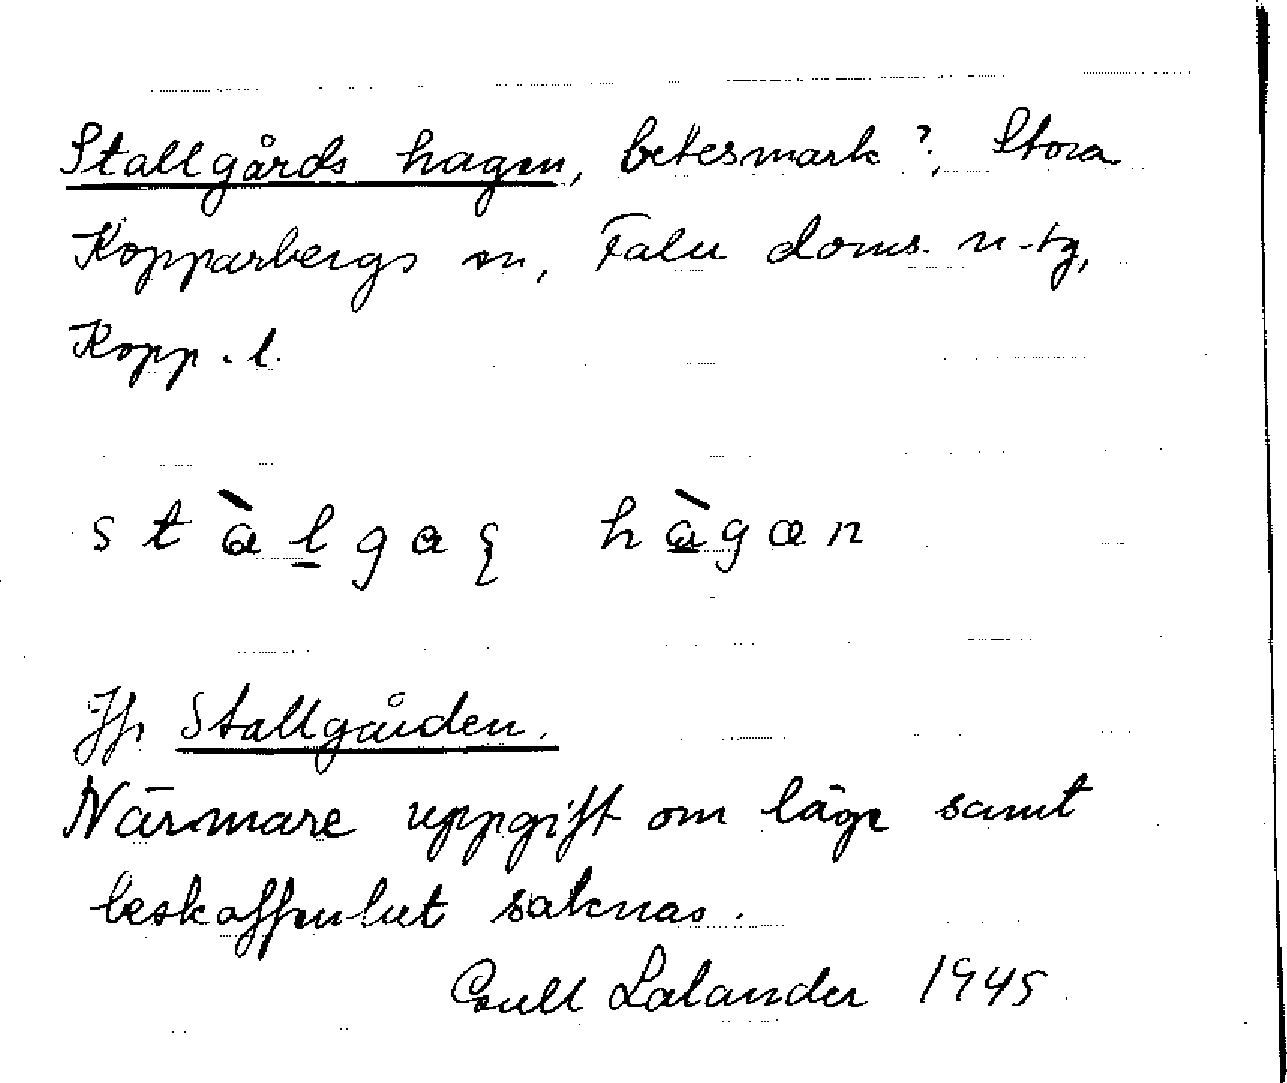 Stallgårds hagen, betesmark?, Stora
Kopparbergs sn, Falu doms. n-tg,
Kopp. l.
stàlgaȿ hàgæn
Jfr Stallgården.
Närmare uppgift om läge samt
beskaffenhet saknas.
Lalander 1945